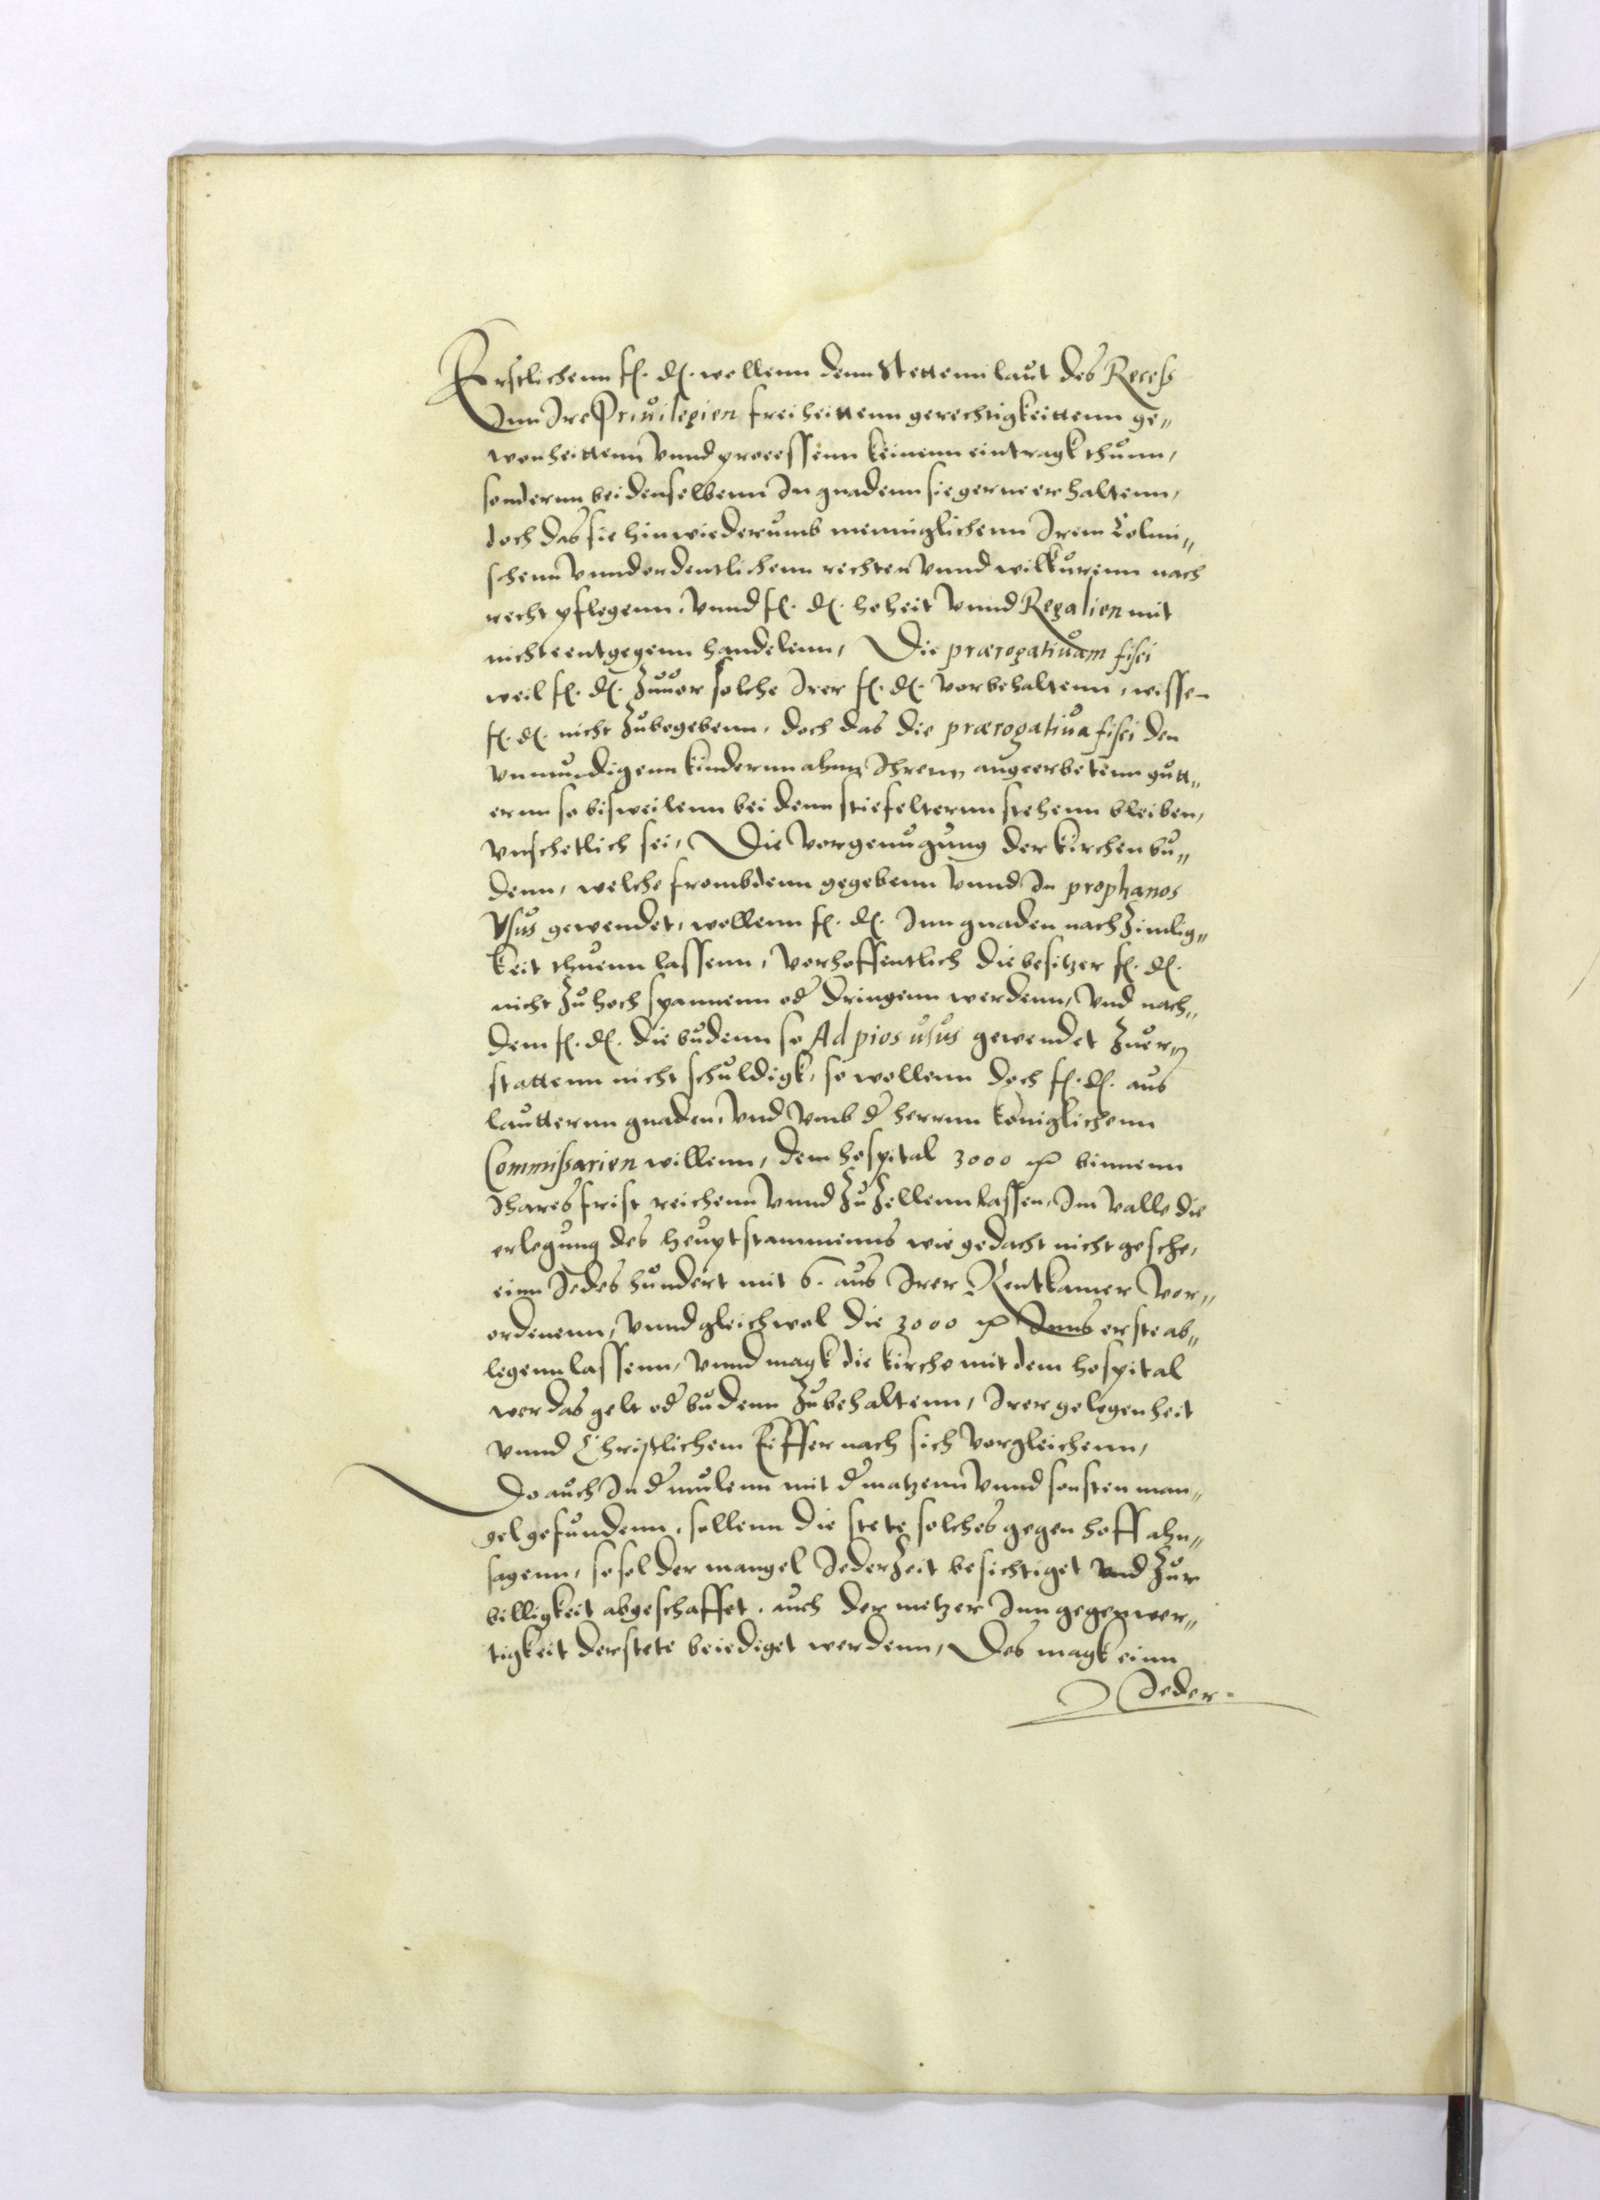 Erstlichenn f. d. wollenn denn Stettenn laut des Recess
Inn Ire Priuilegien freiheittenn gerechtigkeittenn ge„
wonheittenn vnnd processenn keinenn eintragk thunn,
sondernn bei denselbenn In gnadenn sie gerne erhaltenn,
doch das sie hinwiederumb menniglichenn Irem Colmi„
schenn vnnd ordentlichenn rechten vnnd wilkurenn nach
recht pflegenn, vnnd f. d. hoheit vnnd Regalien mit
nichte entgegenn handelenn, Die prærogatiuam fisci
weil f. d. Zuuor solche Irer f. d. vorbehaltenn, wissen
f. d. nicht Zubegebenn, doch das die prærogatiua fisci den
vnmundigenn kindernn ahnn Ihrenn angeerbetenn gutt„
ernn so bisweilenn bei denn stiefelternn stehenn bleiben,
vnschetlich sei, Die vorgenugung der kirchen bu„
denn, welche frombdenn gegebenn vnnd In prophanos
Vsus gewendet, wollenn f. d. Inn gnaden nach Zimlig„
keit thuenn lassenn, vorhoffentlich die besitzer f. d.
nicht Zu hoch spannenn od dringenn werdenn, vnd nach„
dem f. d. die budenn so Ad pios usus gewendet Zuer„
stattenn nicht schuldigk, so wollenn doch f. d. aus
lautternn gnaden, vnd vmb d herrnn königlichenn
Commissarien willenn, dem hospital 3000 mk binnenn
Ihares frist reichenn vnnd Zu Zellenn lassen, Im valle die
erlegung des heuptstammenns wie gedacht nicht geschee,
einn Iedes hundert mit 6. aus Irer Rentkamer vor„
ordenenn, vnnd gleichwol die 3000 mk Inns erste ab„
legenn lassenn, vnnd magk die kirche mit dem hospital
wer das gelt od budenn Zubehaltenn, Irer gelegenheit
vnnd Christlichem Eiffer nach sich vorgleichenn,
Do auch In d mulenn mit d matzenn vnnd sonsten man„
gel gefundenn, sollenn die stete solches gegen hoff ahn„
sagenn, so sol der mangel IederZeit besichtiget vnd Zur
billigkeit abgeschaffet, auch der metzer Inn gegenwer„
tigkeit der stete beiediget werdenn, Des magk einn
Ieder